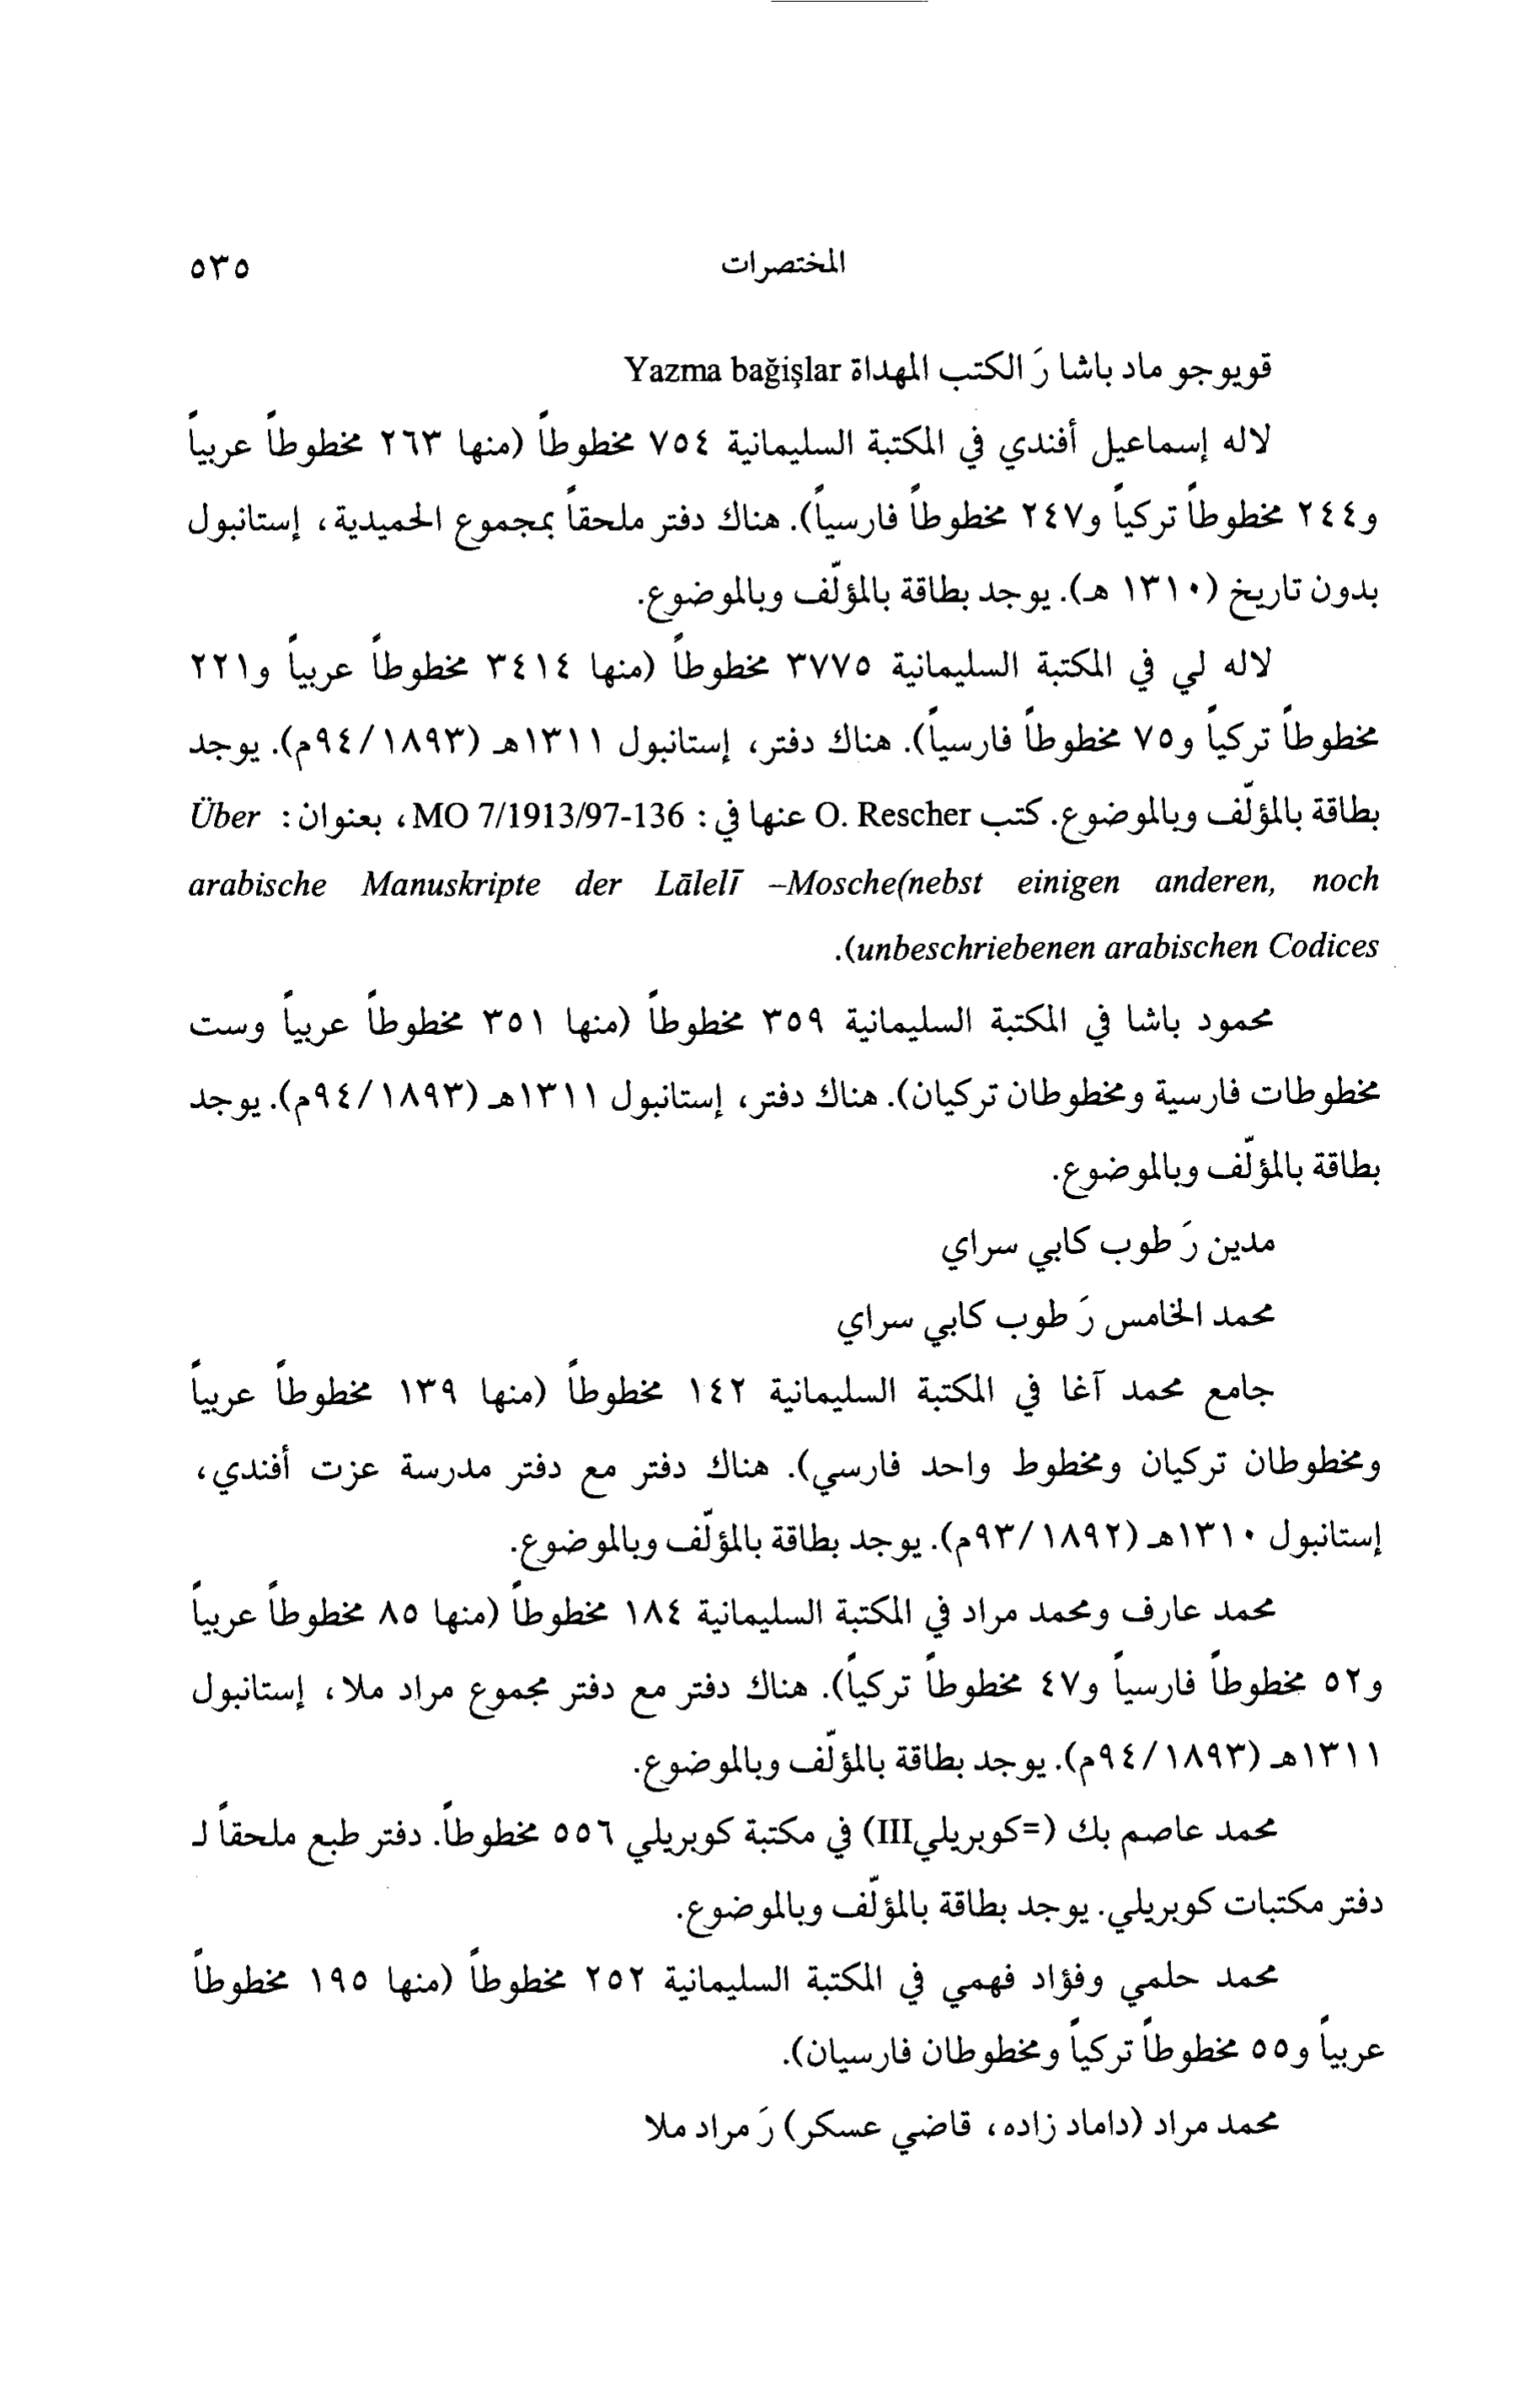 المختصرات ٥٣٥
قويوجو ماد باشا رَ الكتب المهداة Yazma bağişlar
لاله إسماعيل أفندي في المكتبة السليمانية ٧٥٤ مخطوطاً (منها ٢٦٣ مخطوطاً عربياً
و٢٤٤ مخطوطاً تركياً و٢٤٧ مخطوطاً فارسياً). هناك دفتر ملحقاً بمجموع الحميدية، إستانبول
بدون تاريخ (١٣١٠ هـ). يوجد بطاقة بالمؤلّف وبالموضوع.
لاله لي في المكتبة السليمانية ٣٧٧٥ مخطوطاً (منها ٣٤١٤ مخطوطاً عربياً و٢٢١
مخطوطاً تركياً و٧٥ مخطوطاً فارسياً). هناك دفتر، إستانبول ١٣١١هـ (٩٤/١٨٩٣م). يوجد
بطاقة بالمؤلّف وبالموضوع. كتب O. Rescher عنها في: MO 7/1913/97-136، بعنوان: Über
arabische Manuskripte der Lālelī –Mosche(nebst einigen anderen, noch
unbeschriebenen arabischen Codices).
محمود باشا في المكتبة السليمانية ٣٥٩ مخطوطاً (منها ٣٥١ مخطوطاً عربياً وست
مخطوطات فارسية ومخطوطان تركيان). هناك دفتر، إستانبول ١٣١١هـ (٩٤/١٨٩٣م). يوجد
بطاقة بالمؤلّف وبالموضوع.
مدين رَ طوب كابي سراي
محمد الخامس رَ طوب كابي سراي
جامع محمد آغا في المكتبة السليمانية ١٤٢ مخطوطاً (منها ١٣٩ مخطوطاً عربياً
ومخطوطان تركيان ومخطوط واحد فارسي). هناك دفتر مع دفتر مدرسة عزت أفندي،
إستانبول ١٣١٠هـ (٩٣/١٨٩٢م). يوجد بطاقة بالمؤلّف وبالموضوع.
محمد عارف ومحمد مراد في المكتبة السليمانية ١٨٤ مخطوطاً (منها ٨٥ مخطوطاً عربياً
و٥٢ مخطوطاً فارسياً و٤٧ مخطوطاً تركياً). هناك دفتر مع دفتر مجموع مراد ملا، إستانبول
١٣١١هـ (٩٤/١٨٩٣م). يوجد بطاقة بالمؤلّف وبالموضوع.
محمد عاصم بك (=كوبريليIII) في مكتبة كوبريلي ٥٥٦ مخطوطاً. دفتر طبع ملحقاً لـ
دفتر مكتبات كوبريلي. يوجد بطاقة بالمؤلّف وبالموضوع.
محمد حلمي وفؤاد فهمي في المكتبة السليمانية ٢٥٢ مخطوطاً (منها ١٩٥ مخطوطاً
عربياً و٥٥ مخطوطاً تركياً ومخطوطان فارسيان).
محمد مراد (داماد زاده، قاضي عسكر) رَ مراد ملا